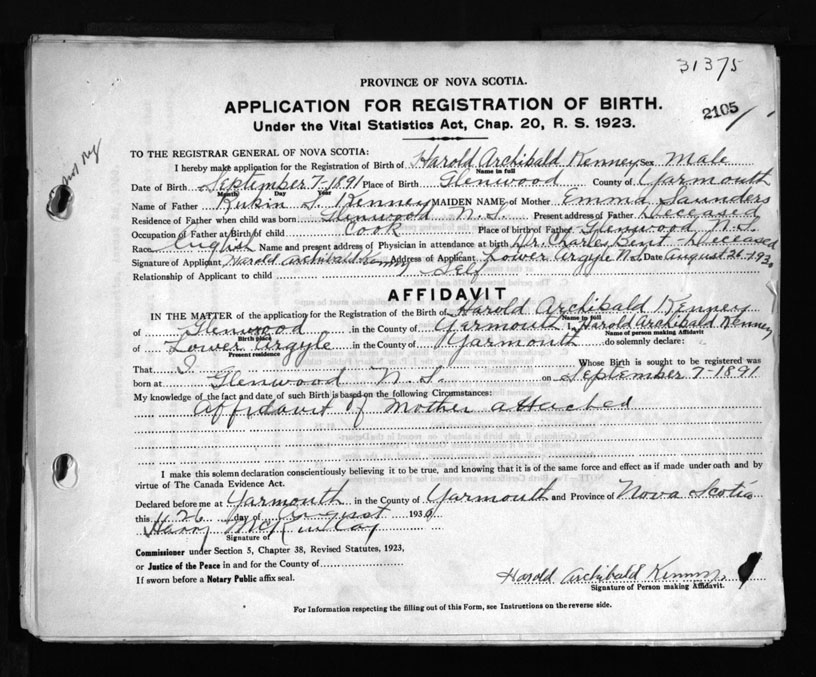 31375
PROVINCE OF NOVA SCOTIA.
APPLICATION FOR REGISTRATION OF BIRTH.
2105
Under the Vital Statistics Act, Chap. 20, R. S. 1923.
TO THE REGISTRAR GENERAL OF NOVA SCOTIA:
I hereby make application for the Registration of Birth of Harold Archibald Kenney Sex Male
Name in full
Date of Birth September 7-1891 Place of Birth Glenwood County of Yarmouth
Month Day Year
Name of Father S. Kenney MAIDEN NAME of Mother Emma Saunders
Residence of Father when child was born Glenwood N.S. Present address of Father Deceased
Occupation of Father at Birth of child Cook Place of birth of Father Glenwood N.S.
Race English Name and present address of Physician in attendance at birth Dr. Charles Bent - Deceased
Signature of Applicant Harold Archibald Kenney Address of Applicant Lower Argyle N.S. Date August 26-1930
Relationship of Applicant to child Self
AFFIDAVIT
IN THE MATTER of the application for the Registration of the Birth of Harold Archibald Kenney
Name in full
of Glenwood in the County of Yarmouth I, Harold Archibald Kenney
Birth place Name of person making Affidavit
of Lower Argyle in the County of Yarmouth do solemnly declare:
Present residence
That I Whose Birth is sought to be registered was
born at Glenwood N.S. on September 7-1891
My knowledge of the fact and date of such Birth is based on the following Circumstances:
Affidavit of Mother attached
I make this solemn declaration conscientiously believing it to be true, and knowing that it is of the same force and effect as if made under oath and by
virtue of The Canada Evidence Act.
Declared before me at Yarmouth in the County of Yarmouth and Province of Nova Scotia
this 26 day of August 1930
Harry McKinlay
Signature of
Commissioner under Section 5, Chapter 38, Revised Statutes, 1923,
or Justice of the Peace in and for the County of
If sworn before a Notary Public affix seal.
Harold Archibald Kenney
Signature of Person making Affidavit.
For Information respecting the filling out of this Form, see Instructions on the reverse side.